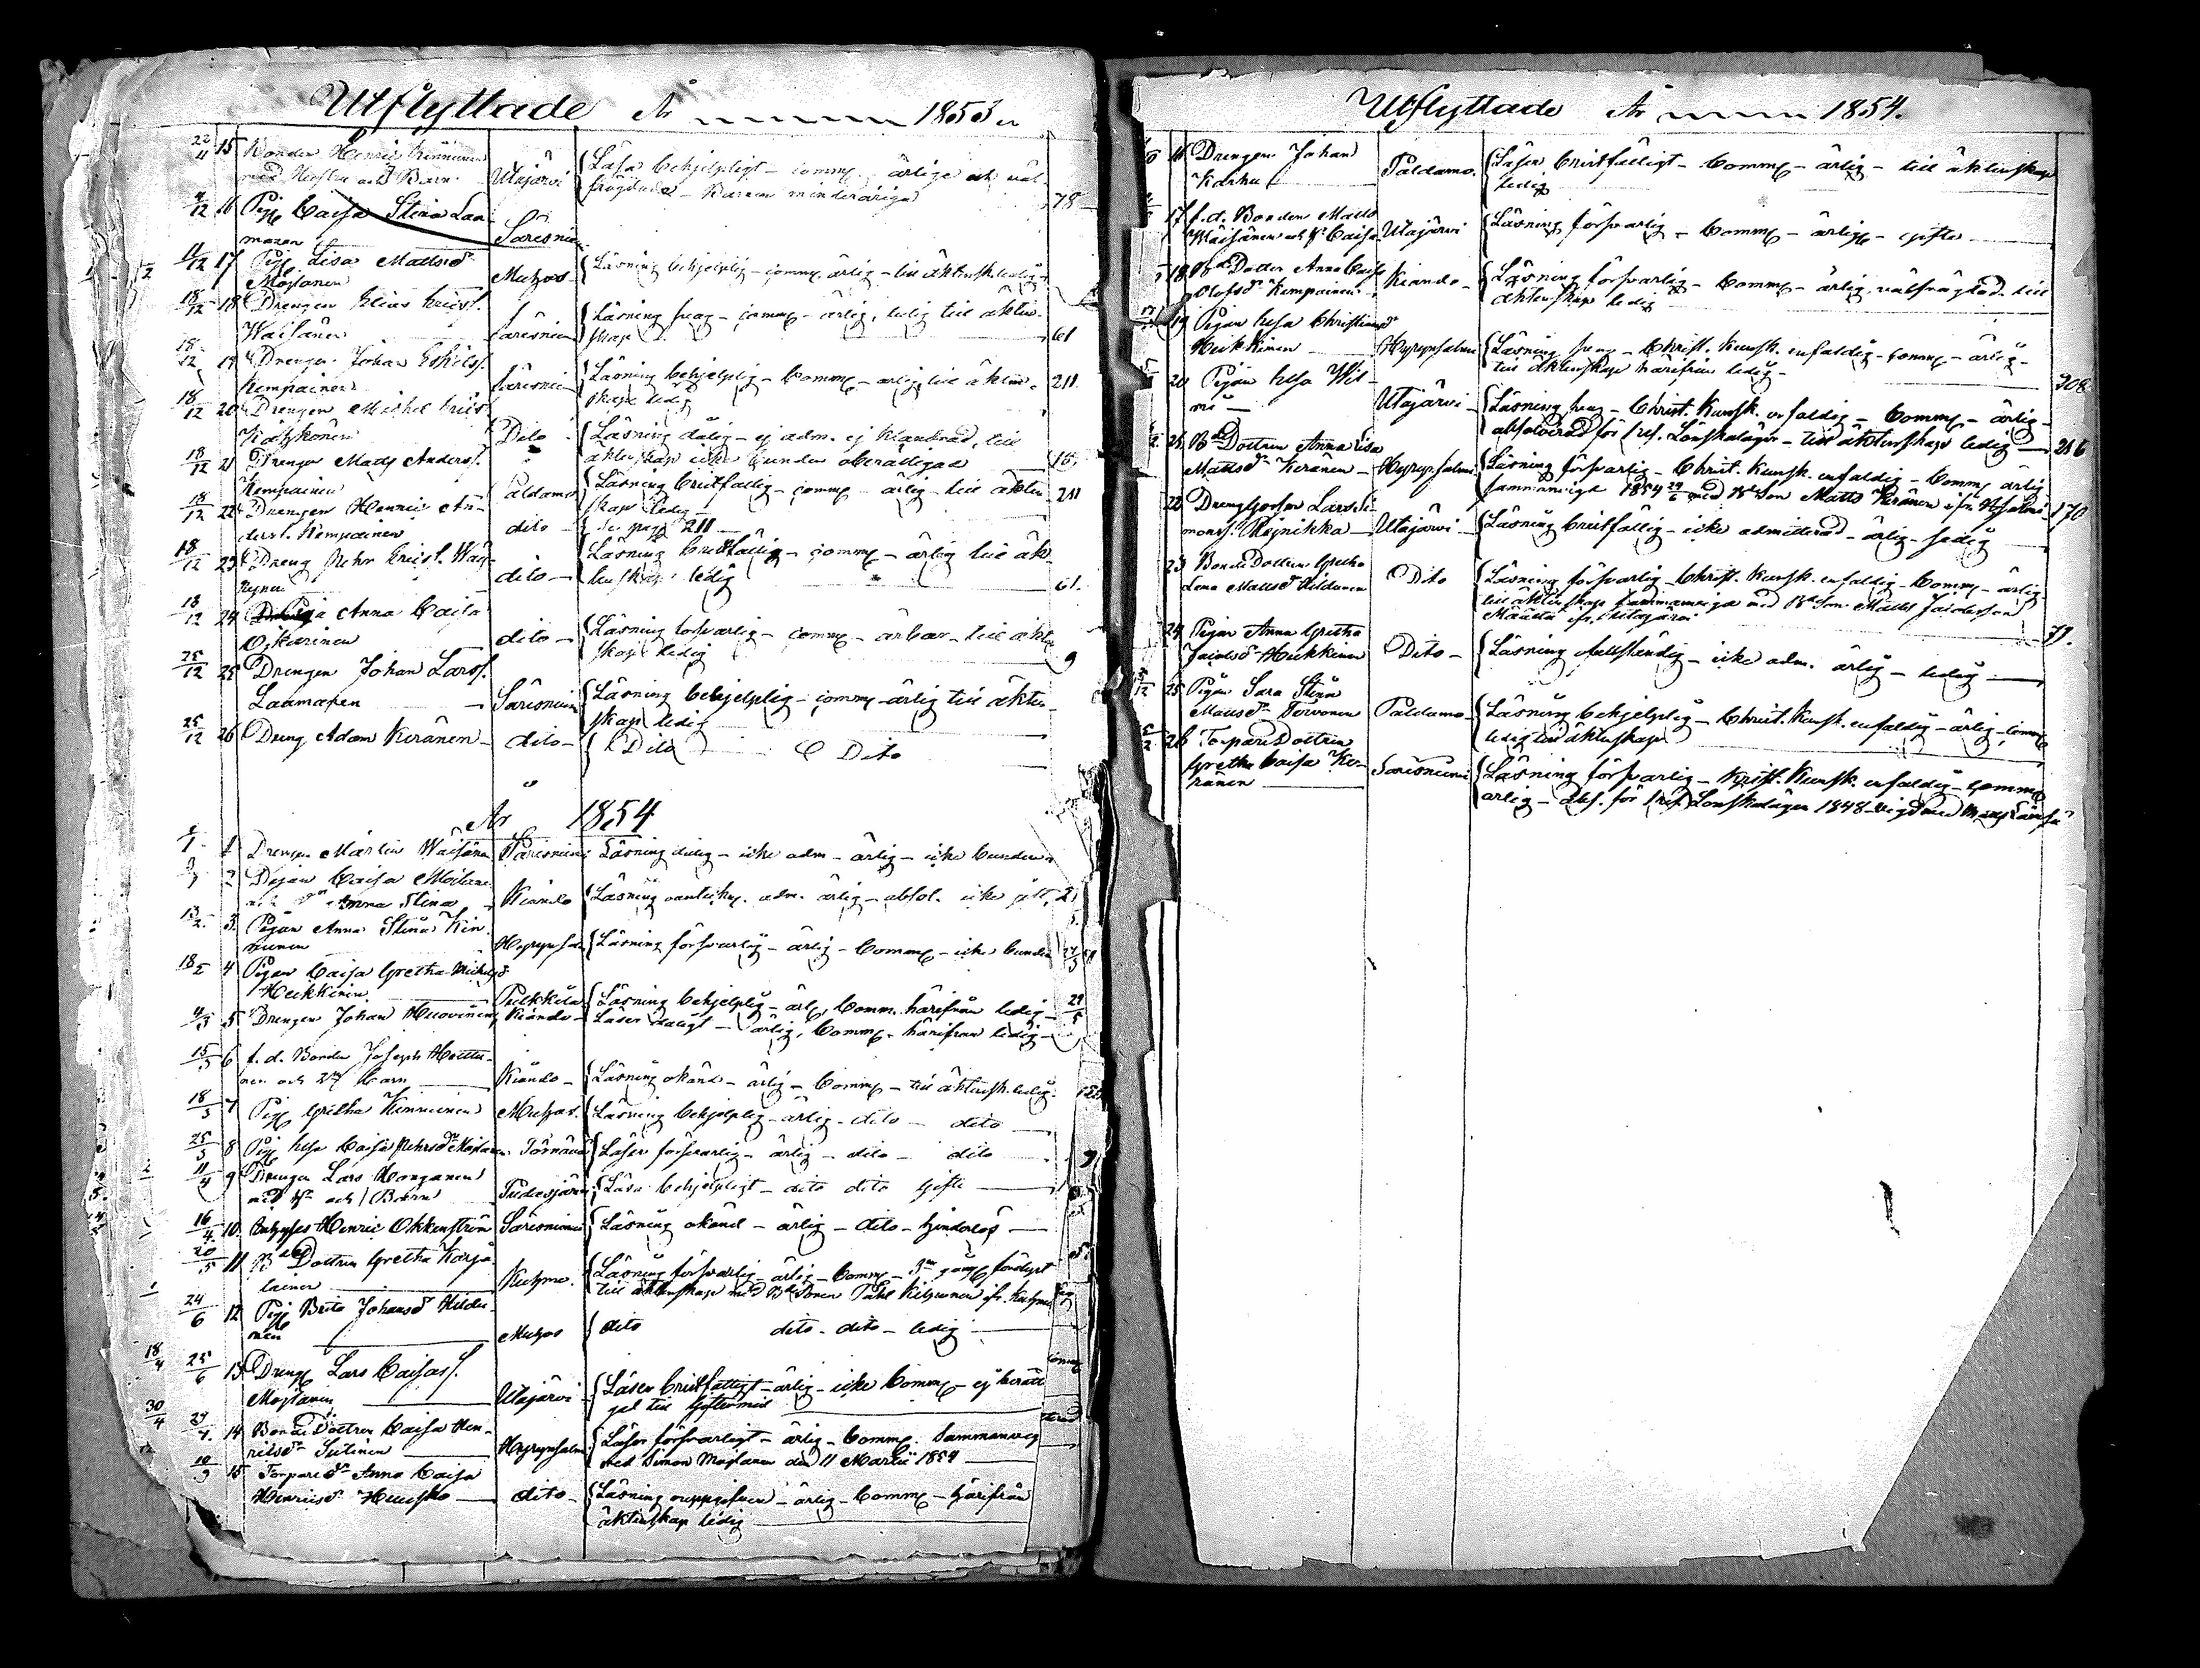 Utflyttade År 1853
15 Bonden Henric Kinnunen
med Hustru och Barn Utajärvi Läsa behjelpligt - comm. ärlige och väl
frägdade - Barnen minderåriga 78
12 16 Pig Caisa Stina Laa
manen Säresniemi
12 17 Pig Lisa Mattsdr
Mojlanen Muhos Läsning behjelplig - comm. ärlig - till äktensk. ledig
18/12 18 Drengen Elias Ericss.
Waisänen Säresniemi Läsning svag - comm - ärlig, ledig till äkten-
skap 61
18/12 19 Drengen Johan
Kempainen Säresniemi Läsning behjelplig - Comm - ärlig till äkten-
skap ledig 211
18/12 20 Drengen Michel Erics
Dito Läsning dålig - ej adm. ej klandrad, till
äktenskap icke bunden oberättigad
18/12 21 Drengen Matts Anderss.
Kempainen Paldamo Läsning bristfällig - comm - ärlig - till äkten
skap ledig 211
18/12 22 Drengen Henric An-
derss. Kempainen dito se pag 211
18/12 23 Dreng Pehr Ericss. Wäy-
rynen dito Läsning bristfällig - comm - ärlig till äk-
tenskap ledig 61
18/12 24 Anna Caisa
Oikarinen dito Läsning försvarlig - comm - ärbar - till äkten
skap ledig 9
25/12 25 Drengen Johan Larss.
Laamanen Säresniemi Läsning behjelplig - comm - ärlig till äkten-
skap ledig
25/12 26 Dreng Adam Keränen dito Dito Dito
År 1854
1 Drengen Martin Waisänen Säresniemi Läsning dålig - icke adm - ärlig - icke bunden
2 Pigan Caisa Moilanen
Anna Stina Kiando Läsning adm. ärlig - absol. icke
3 Pigan Anna Stina Kin-
nunen Hyrynsalmi Läsning försvarlig - ärlig - Comm - icke bunden
4 Pigan Caisa Gretha Michelsdr
Heikkinen Pulkkila Läsning behjelplig - ärlig Comm. härifrån ledig
5 Drengen Johan Huovinen Kiando Läser dåligt - ärlig, Comm. härifrån ledig
15/3 6 f.d. Bonden Joseph
nen och 2ne barn Kiando Läsning okänd - ärlig - Comm - till äktensk. ledig
18/3 7 Pig Gretha Kinnunen Muhos Läsning behjelplig - ärlig - dito - dito
25/3 8 Pig Elsa Caisa Pehrsdr Mojlanen Törnävä Läser försvarlig - ärlig - dito - dito
11/4 9 Drengen Lars Horganen
med Hu och 1 Barn Pudasjärvi Läsa behjelpligt - dito dito Gifte
16/4 10 Henric Okkenström Säresniemi Läsning okänd - ärlig - dito - hinderlös
20/5 11 Bde Dottren Gretha Karja-
lainen Kuhmo Läsning försvarlig - ärlig - Comm - 3ne gång förlyst
till äktenskap med Bde Sonen Påhl ifr. Kuhmo
24/6 12 Pig Brita Johansdr Hildu-
nen Muhos dito dito - dito - ledig
18/4 25/6 13 Dreng Lars Caisass.
Mojlanen Utajärvi Läser bristfälligt - ärlig - icke Comm - ej berätti
gad till Giftermål
30/4 14 Bonde Dottren Caisa Hen-
ricsdr Sutinen Hyrynsalmi Läser försvarligt - ärlig - Comm. Sammanvig
med Simon Mojlanen den 11 Martii 1854
15 Torpare dr Anna Caisa
Henricsdr dito Läsning ouppgifven - ärlig - Comm - härifrån
äktenskap ledig
Utflyttade År 1854.
16 Drengen Johan
Karhu Paldamo Läser bristfälligt - Comm - ärlig - till äktenskap
ledig
17 f.d. Bonden Matts
Waisänen och Hu Caisa Utajärvi Läsning försvarlig - Comm - ärlige - gifte
18 Bde Dotter Anna Caisa
Olofsdr Kempainen Kiando Läsning försvarlig - Comm - ärlig, välfrägdad till
äktenskap ledig
19 Pigan Elsa Christiansdr
Heikkinen Hyrynsalmi Läsning svag - Christ. Kunsk. enfaldig - comm - ärlig -
till äktenskap härifrån ledig 308
20 Pigan Elsa
Utajärvi Läsning svag - Christ. Kunsk. enfaldig - Comm - ärlig -
absolverad för 1 res. Lönskaläger - till äktenskap ledig 216
21 Bde Dottren Anna Lisa
Mattsdr Keränen Hyrynsalmi Läsning försvarlig - Christ. Kunsk. enfaldig - Comm ärlig
sammanvigd 1854 med Bde Son Matts Keränen ifr. 170
22 Lars Si-
monss. Mojnikka Utajärvi Läsning bristfällig - icke admitterad - ärlig - ledig
23 Bonde Dottren Gretha
Lena Mattsdr Hildunen Dito Läsning försvarlig - Christ. Kunsk. enfaldig - Comm - ärlig
till äktenskap sammanviga med Bde Son Matts Jacobsson
Määttä ifr. Utajärvi 77.
24 Pigan Anna Gretha
Jacobsdr Heikkinen Dito Läsning fullständig - icke adm. ärlig - ledig
12 25 Pigan Sara Stina
Mattsdr Tervonen Paldamo Läsning behjelplig - Christ. Kunsk. enfaldig - ärlig - comm
ledig till äktenskap
26 Torpare Dottren
Gretha Caisa Ke-
ränen Säresniemi Läsning försvarlig - Christ. Kunsk. enfaldig - Comm
ärlig - abs. för 1 res. Lönskaläger 1848 - vigd med